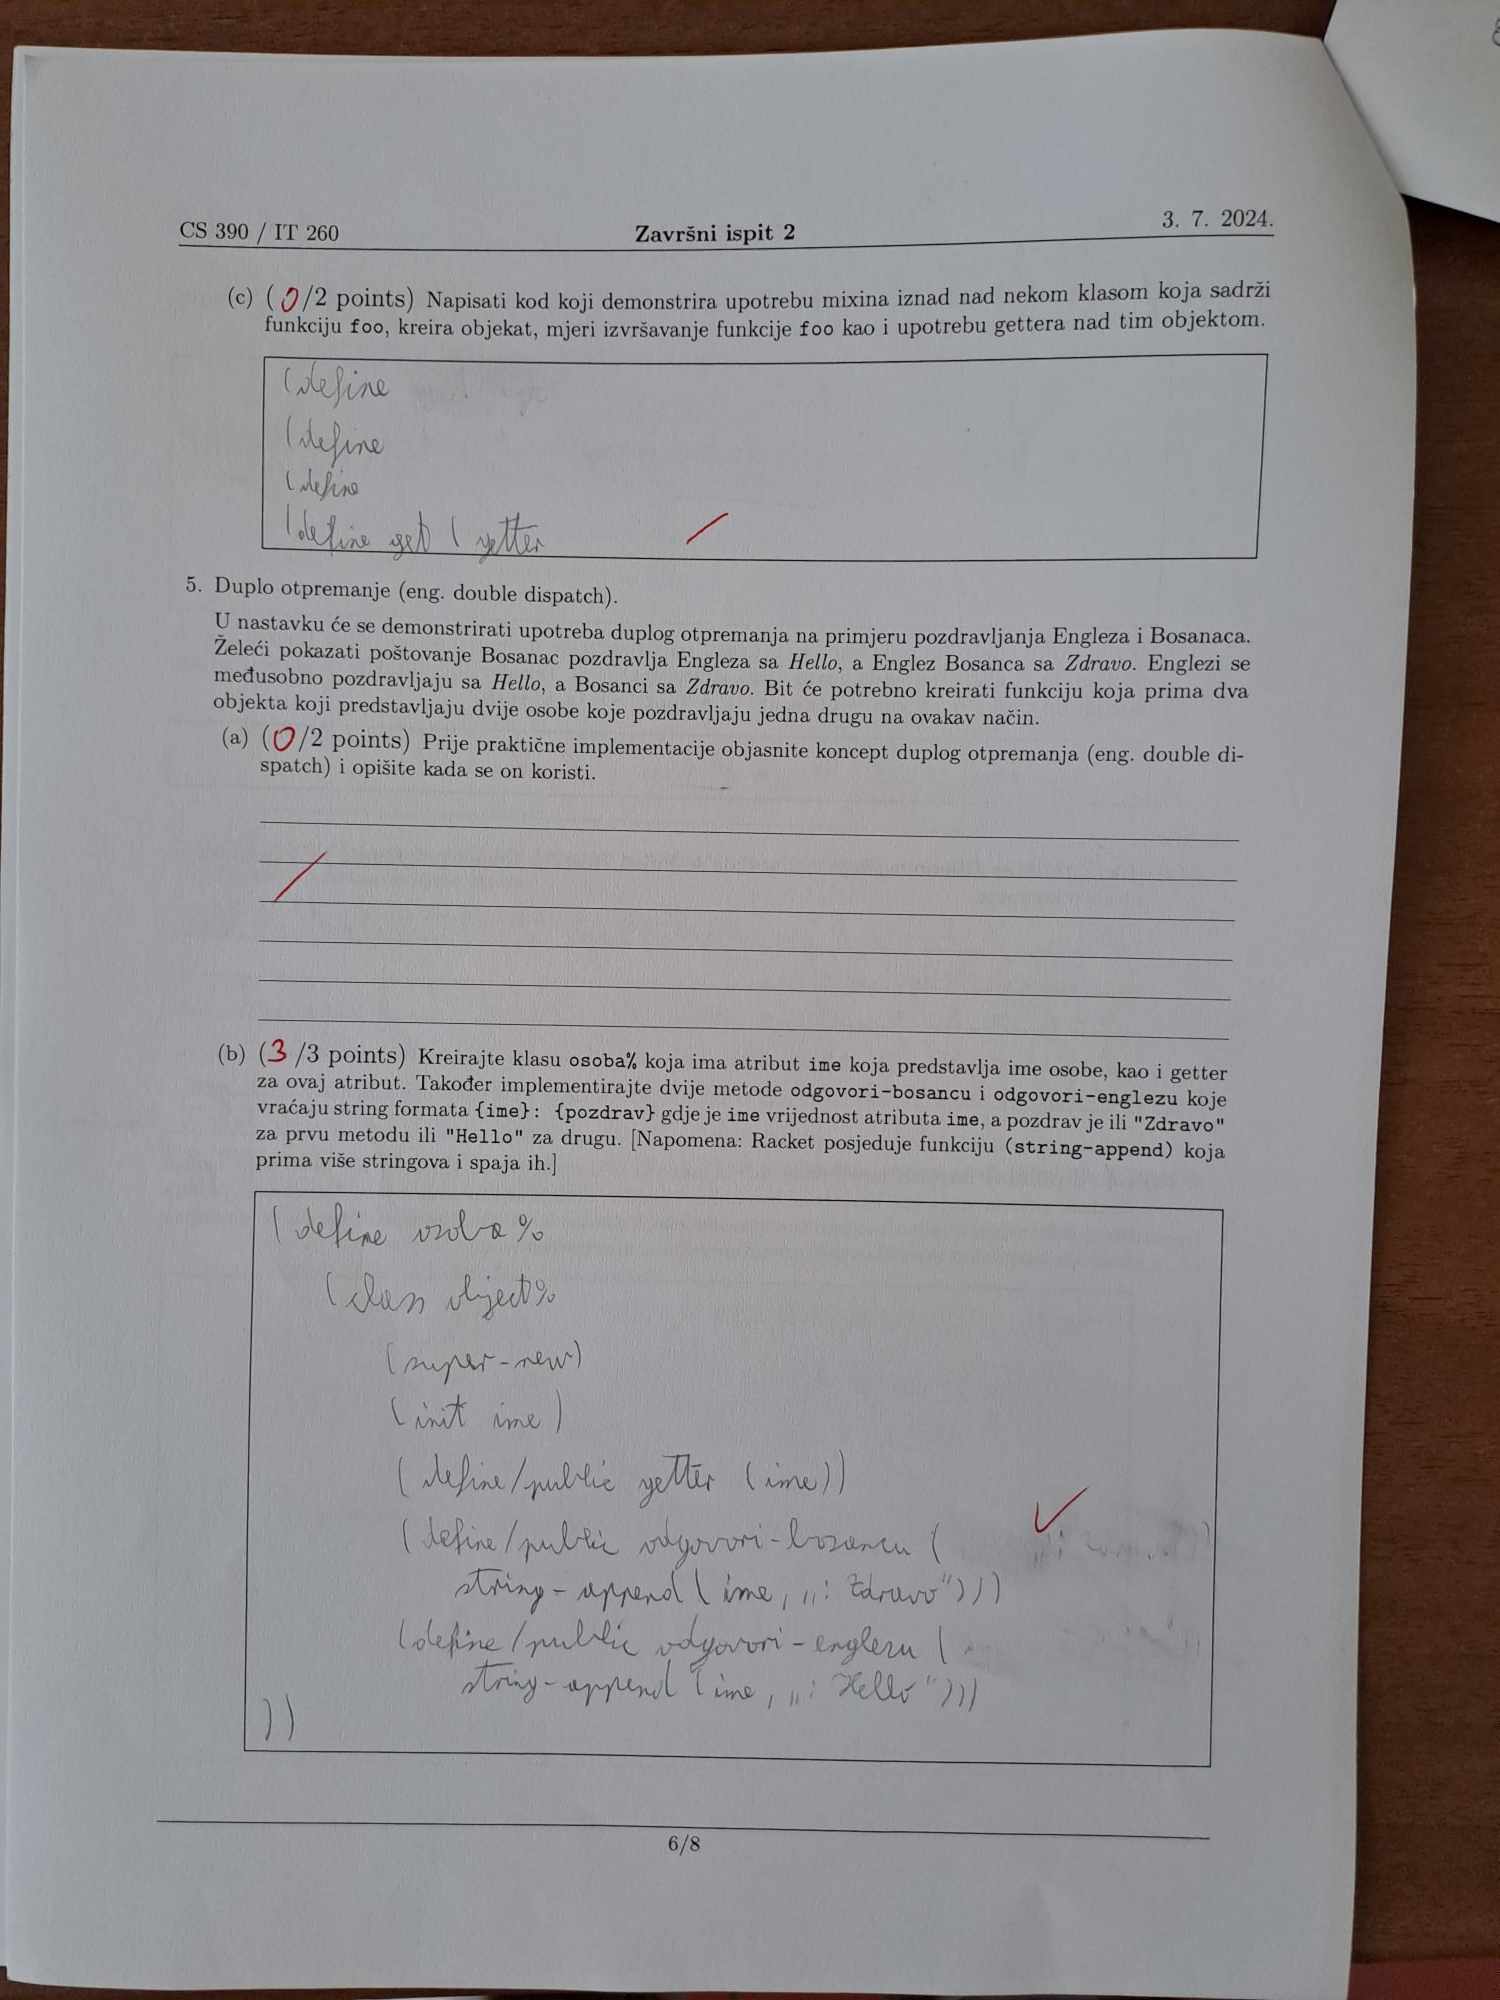 CS 390 / IT 260 Završni ispit 2 3. 7. 2024.
(c) (0/2 points) Napisati kod koji demonstrira upotrebu mixina iznad nad nekom klasom koja sadrži
funkciju foo, kreira objekat, mjeri izvršavanje funkcije foo kao i upotrebu gettera nad tim objektom.
(define
(define
(define
(define get ( getter
5. Duplo otpremanje (eng. double dispatch).
U nastavku će se demonstrirati upotreba duplog otpremanja na primjeru pozdravljanja Engleza i Bosanaca.
Želeći pokazati poštovanje Bosanac pozdravlja Engleza sa Hello, a Englez Bosanca sa Zdravo. Englezi se
međusobno pozdravljaju sa Hello, a Bosanci sa Zdravo. Bit će potrebno kreirati funkciju koja prima dva
objekta koji predstavljaju dvije osobe koje pozdravljaju jedna drugu na ovakav način.
(a) (0/2 points) Prije praktične implementacije objasnite koncept duplog otpremanja (eng. double di-
spatch) i opišite kada se on koristi.
(b) (3/3 points) Kreirajte klasu osoba% koja ima atribut ime koja predstavlja ime osobe, kao i getter
za ovaj atribut. Također implementirajte dvije metode odgovori-bosancu i odgovori-englezu koje
vraćaju string formata {ime}: {pozdrav} gdje je ime vrijednost atributa ime, a pozdrav je ili "Zdravo"
za prvu metodu ili "Hello" za drugu. [Napomena: Racket posjeduje funkciju (string-append) koja
prima više stringova i spaja ih.]
(define osoba%
(class object%
(super-new)
(init ime)
(define/public getter (ime))
(define/public odgovori-bosancu (
string-append (ime, „: Zdravo")))
(define/public odgovori-englezu (
string-append (ime, „: Hello")))
))
6/8